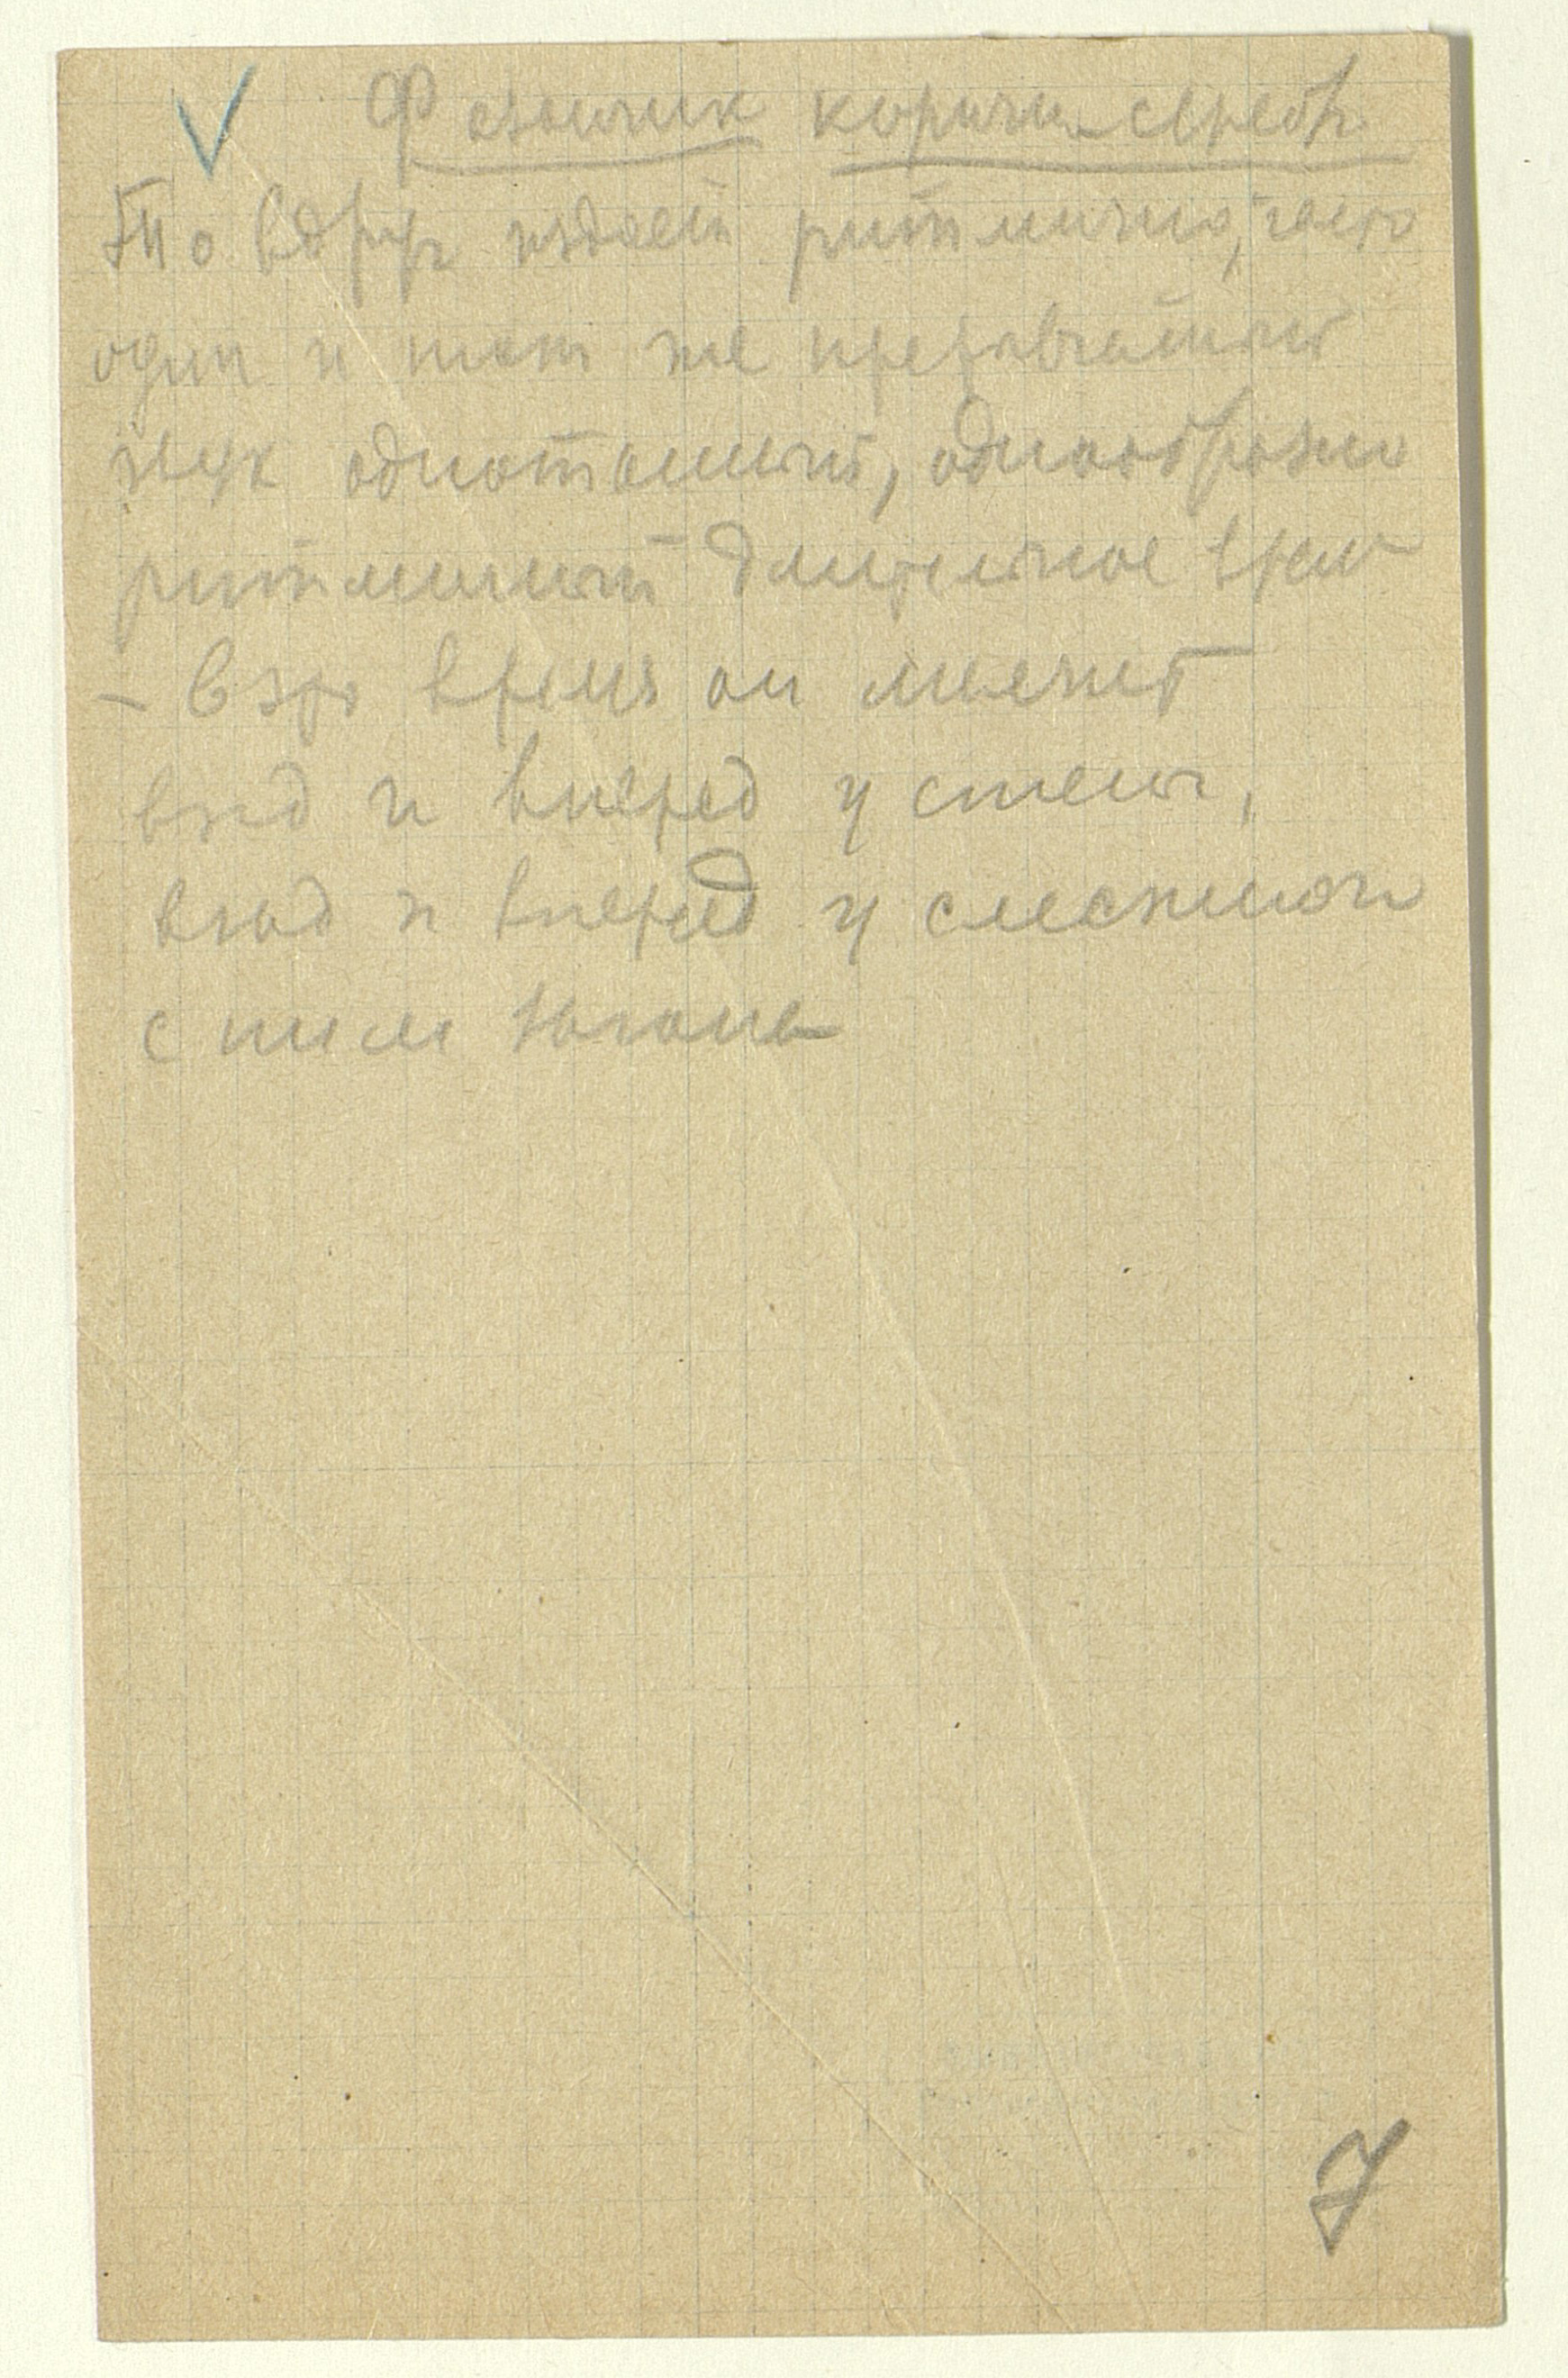 Фазанчик коричн серебр
То вдруг издает ритмично, часто
один и тот же прерывчатый
звук однотонный, однообразно
ритмичный длительное врем
– В это время он мечется
взад и вперед у стены,
взад и вперед у смежной
с ним загона
7